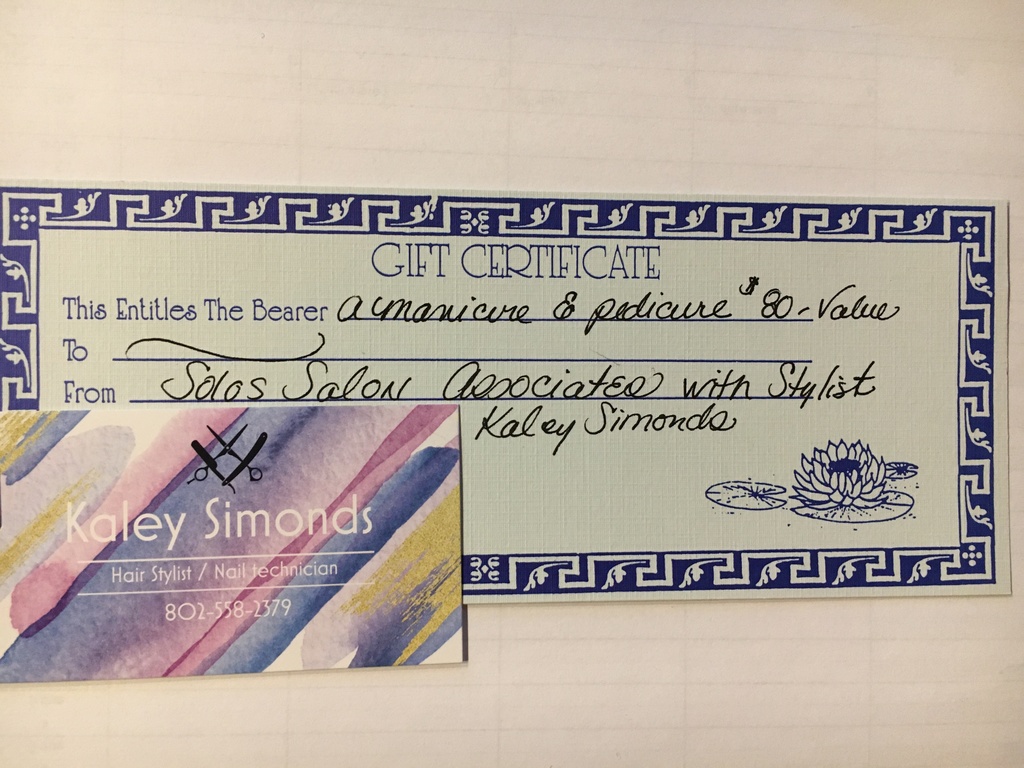 GIFT CERTIFICATE
This Entitles The Bearer a manicure & pedicure $80-Value
To
From Solos Salon Associates with Stylist
Kaley Simonds
Kaley Simonds
Hair Stylist / Nail technician
802-558-2379